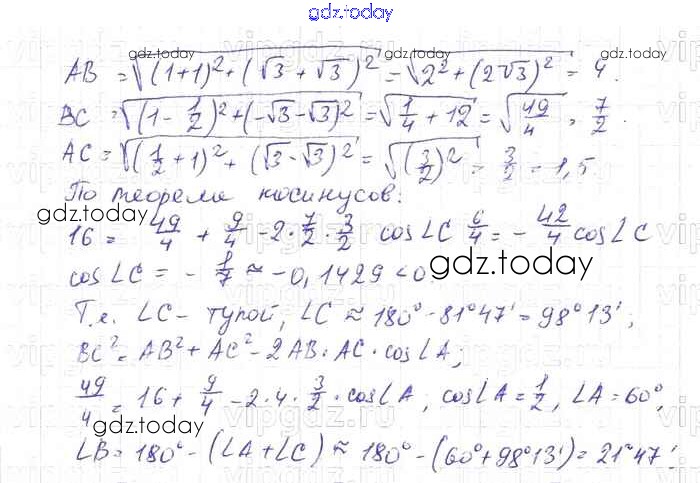 gdz.today
gdz.today gdz.today
AB = √((1+1)² + (√3 + √3)²) = √(2² + (2√3)²) = 4.
BC = √((1 - 1/2)² + (-√3 - √3)²) = √(1/4 + 12) = √(49/4) = 7/2.
AC = √((1/2 + 1)² + (√3 - √3)²) = √((3/2)²) = 3/2 = 1,5
По теореме косинусов:
gdz.today
16 = 49/4 + 9/4 - 2·7/2·3/2 cos∠C 6/4 = - 42/4 cos∠C
gdz.today
cos∠C = - 1/7 ≈ -0,1429 < 0.
Т.е. ∠C - тупой, ∠C ≈ 180° - 81°47' = 98°13';
BC² = AB² + AC² - 2AB·AC·cos∠A;
49/4 = 16 + 9/4 - 2·4·3/2·cos∠A; cos∠A = 1/2, ∠A = 60°,
gdz.today
∠B = 180° - (∠A + ∠C) ≈ 180° - (60° + 98°13') = 21°47'
gdz.today